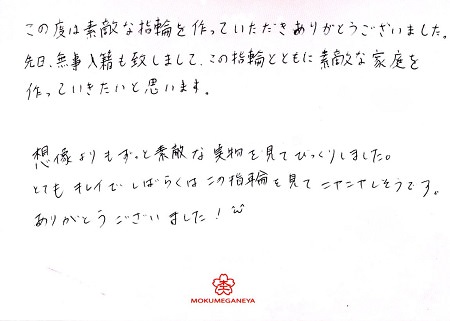 この度は素敵な指輪を作っていただきありがとうございました。
先日、無事入籍も致しまして、この指輪とともに素敵な家庭を
作っていきたいと思います。
想像よりもずっと素敵な実物を見てびっくりしました。
とてもキレイでしばらくはこの指輪を見てニヤニヤしそうです。
ありがとうございました!
MOKUMEGANEYA